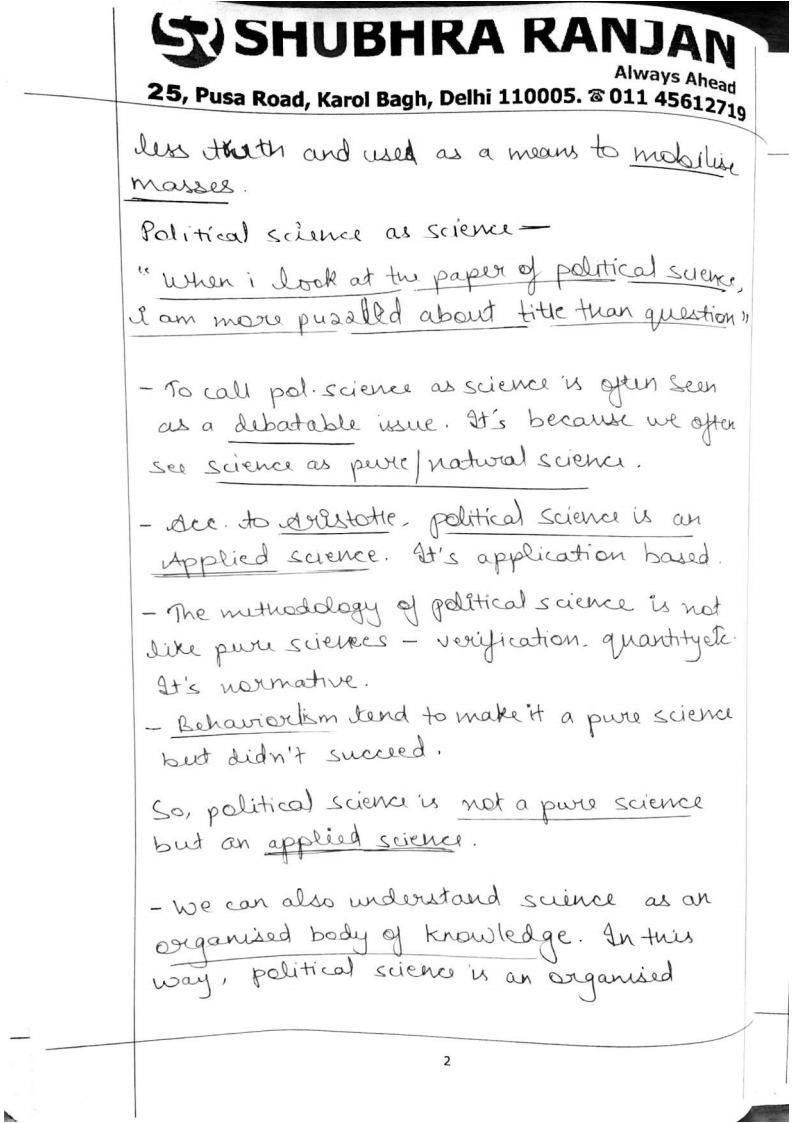 SR SHUBHRA RANJAN
Always Ahead
25, Pusa Road, Karol Bagh, Delhi 110005. ☎ 011 45612719
less truth and used as a means to mobilise
masses.
Political science as science —
"When i look at the paper of political science,
I am more puzzled about title than question"
- To call pol. science as science is often seen
as a debatable issue. It's because we often
see science as pure/natural science.
- Acc. to Aristotle, political science is an
Applied science. It's application based.
- The methodology of political science is not
like pure sciences - verification. quantity etc.
It's normative.
- Behaviorlism tend to make it a pure science
but didn't succeed.
So, political science is not a pure science
but an applied science.
- We can also understand science as an
organised body of knowledge. In this
way, political science is an organised
2